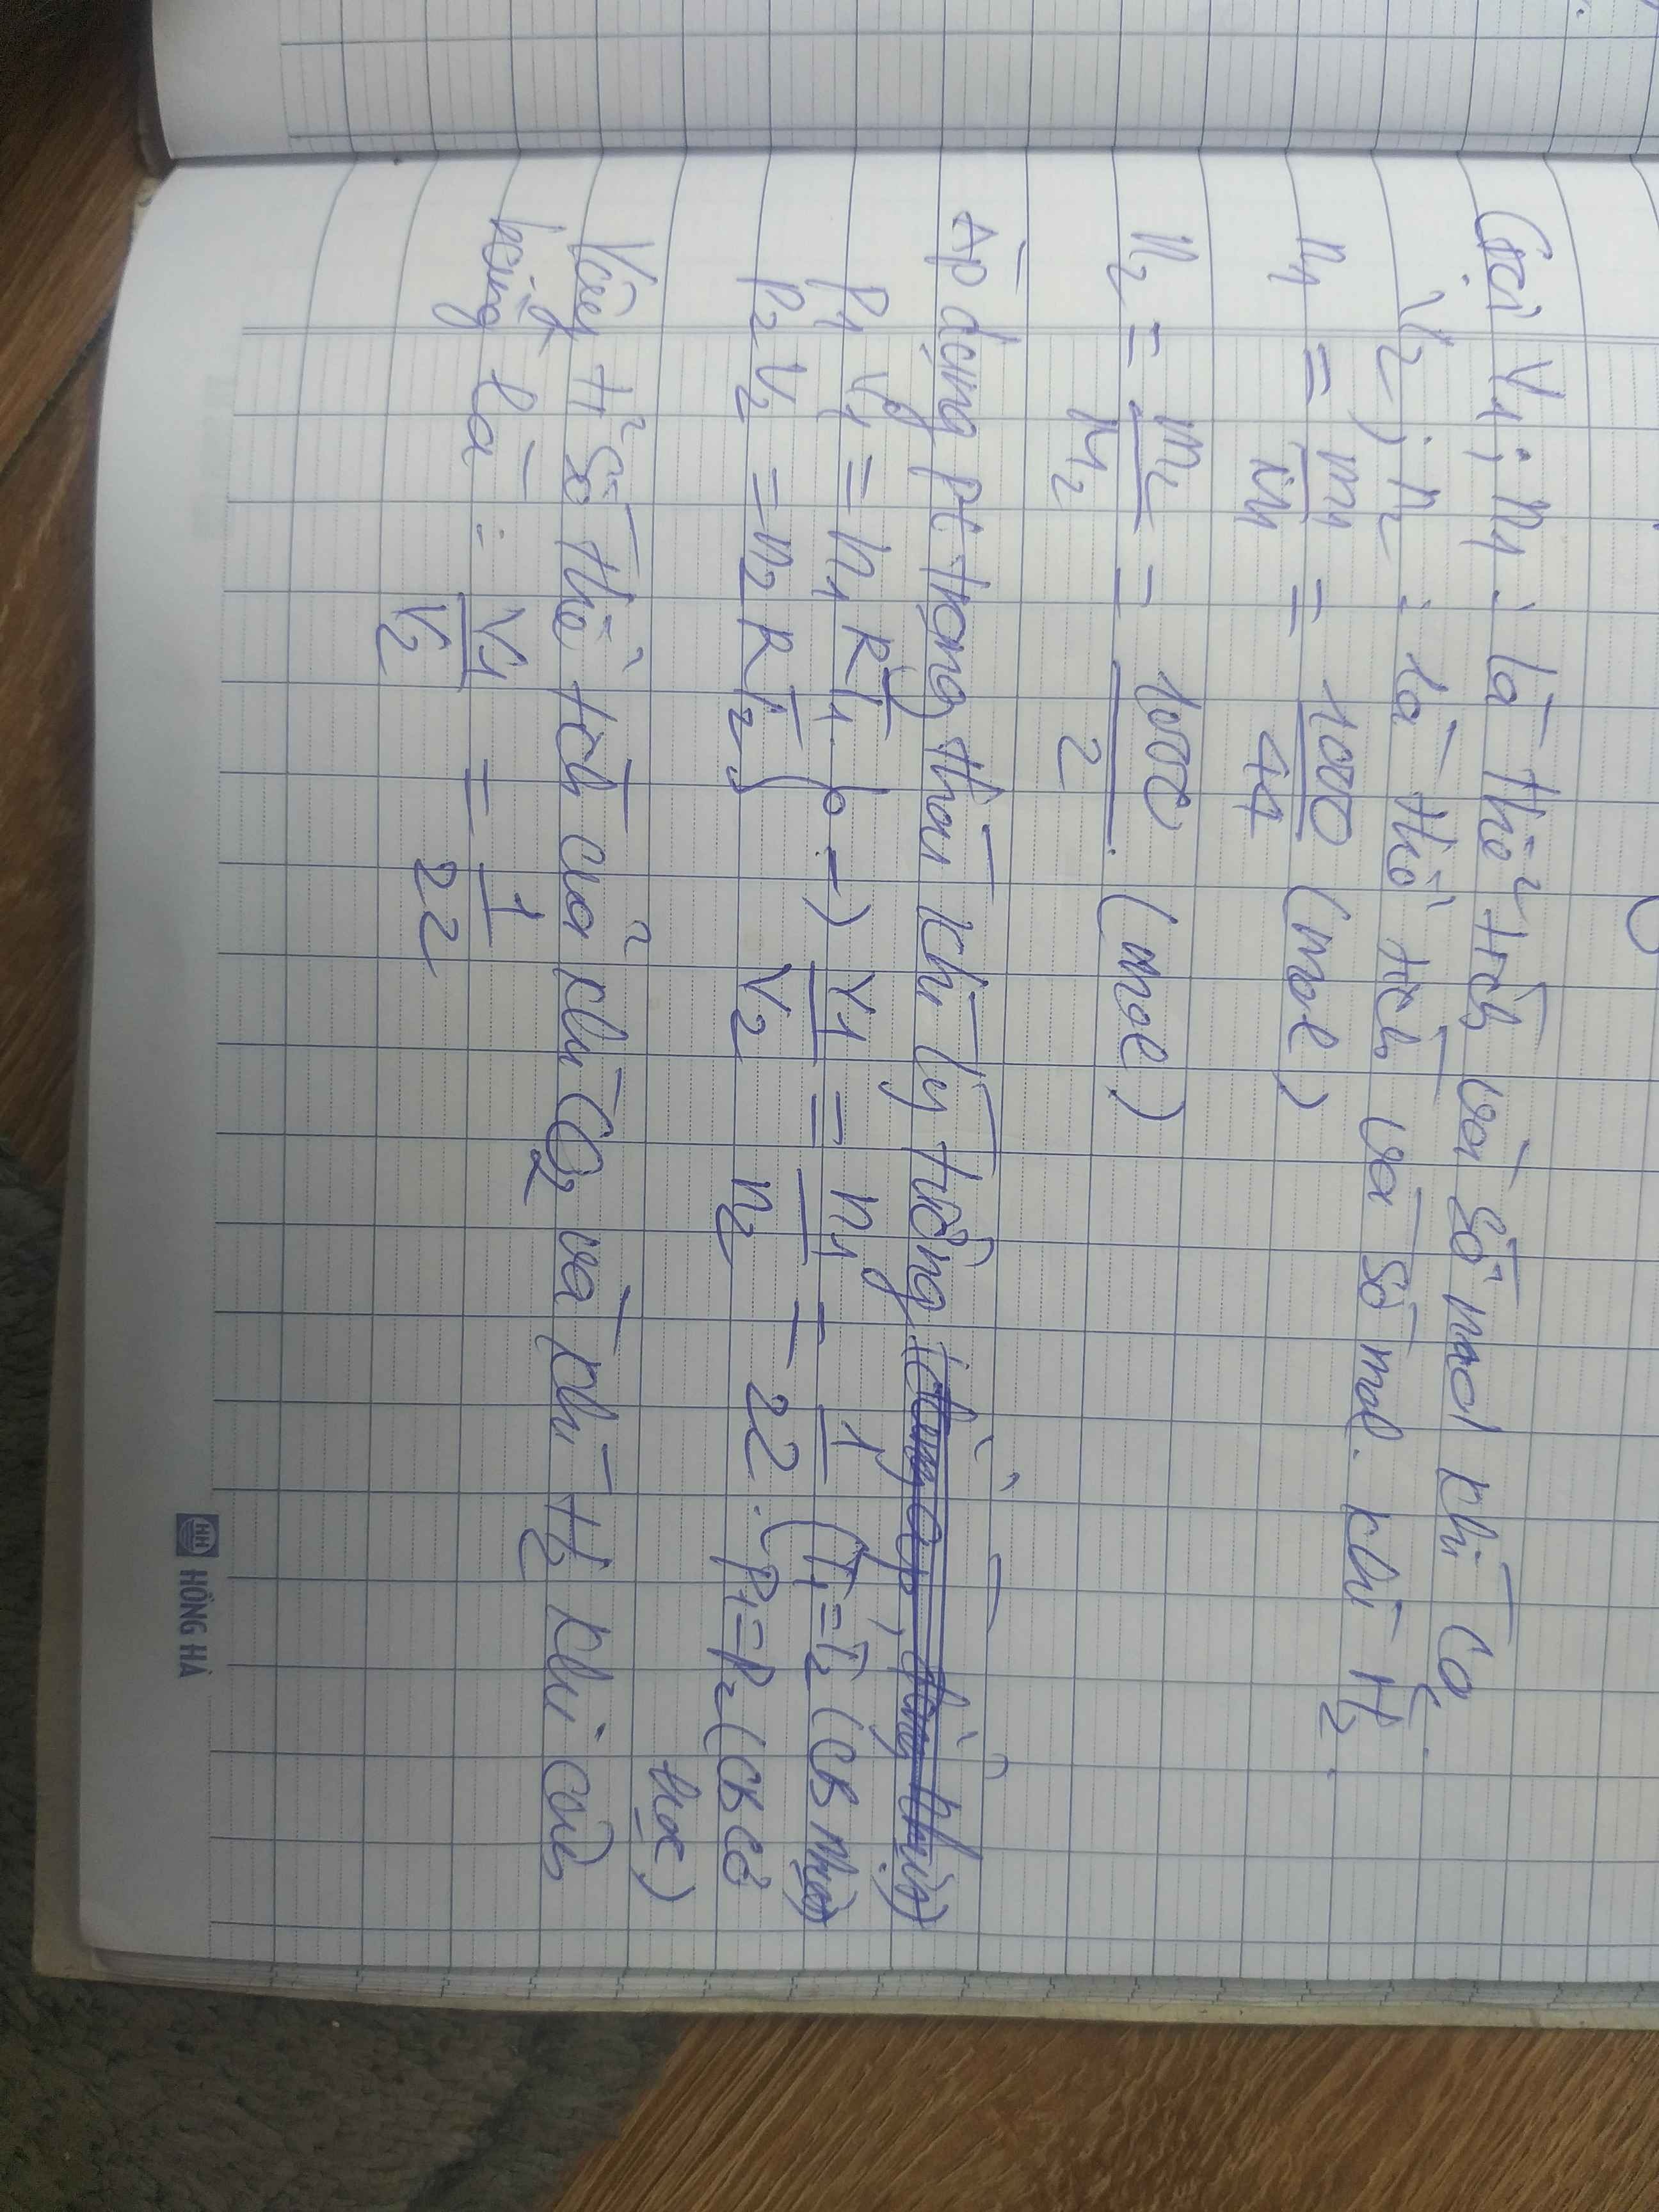 Gọi V1; n1 : là thể tích và số mol khí CO2.
V2; n2 : là thể tích và số mol. khí H2.
n1 = m1/M1 = 1000/44 (mol)
n2 = m2/M2 = 1000/2 . (mol)
Áp dụng pt trạng thái khí lý tưởng
P1 V1 = n1 RT1
P2 V2 = n2 RT2 } → V1/V2 = n1/n2 = 1/22 . (T1 = T2 (CB nhiệt)
P1 = P2 (CB cơ
học)
Vậy tỉ số thể tích của khí CO2 và khí H2 khi cân
bằng là : V1/V2 = 1/22
HỒNG HÀ